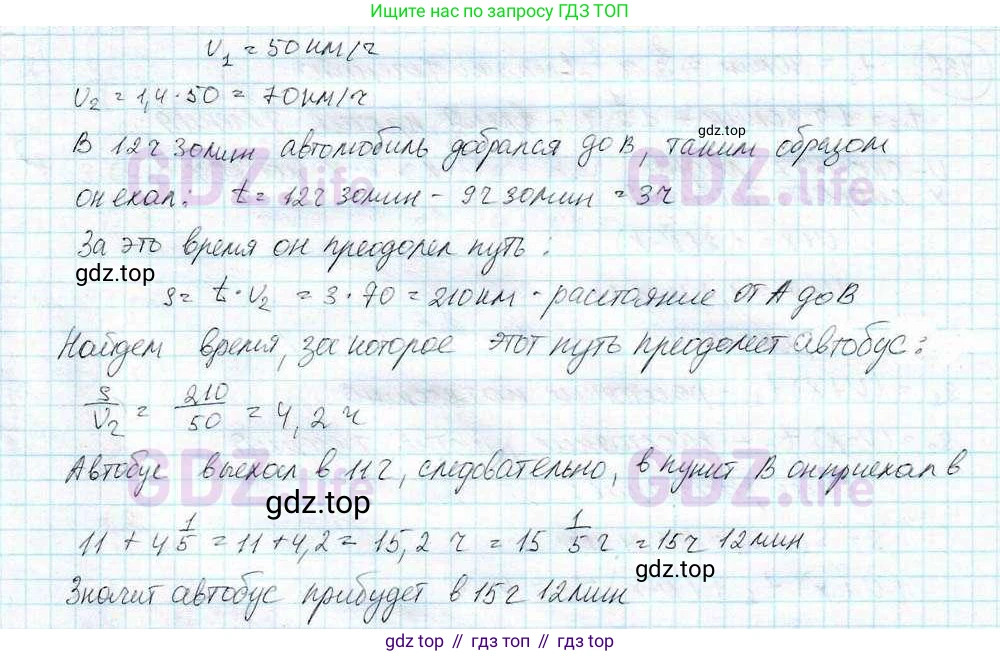 Ищите нас по запросу ГДЗ ТОП
v₁ = 50 км/ч
v₂ = 1,4 · 50 = 70 км/ч
gdz.top
В 12ч 30мин автомобиль добрался до В, таким образом
он ехал: t = 12ч 30мин - 9ч 30мин = 3ч
GDZ.life GDZ.life
За это время он преодолел путь:
gdz.top
s = t · v₂ = 3 · 70 = 210км - расстояние от А до В
Найдем время, за которое этот путь преодолеет автобус:
s/v₂ = 210/50 = 4,2 ч
Автобус выехал в 11 ч, следовательно, в пункт В он приехал в
GDZ.life GDZ.life
gdz.top
11 + 4 1/5 = 11 + 4,2 = 15,2 ч = 15 1/5 ч = 15ч 12мин
gdz.top
Значит автобус прибудет в 15ч 12мин
gdz.top // гдз топ // gdz.top